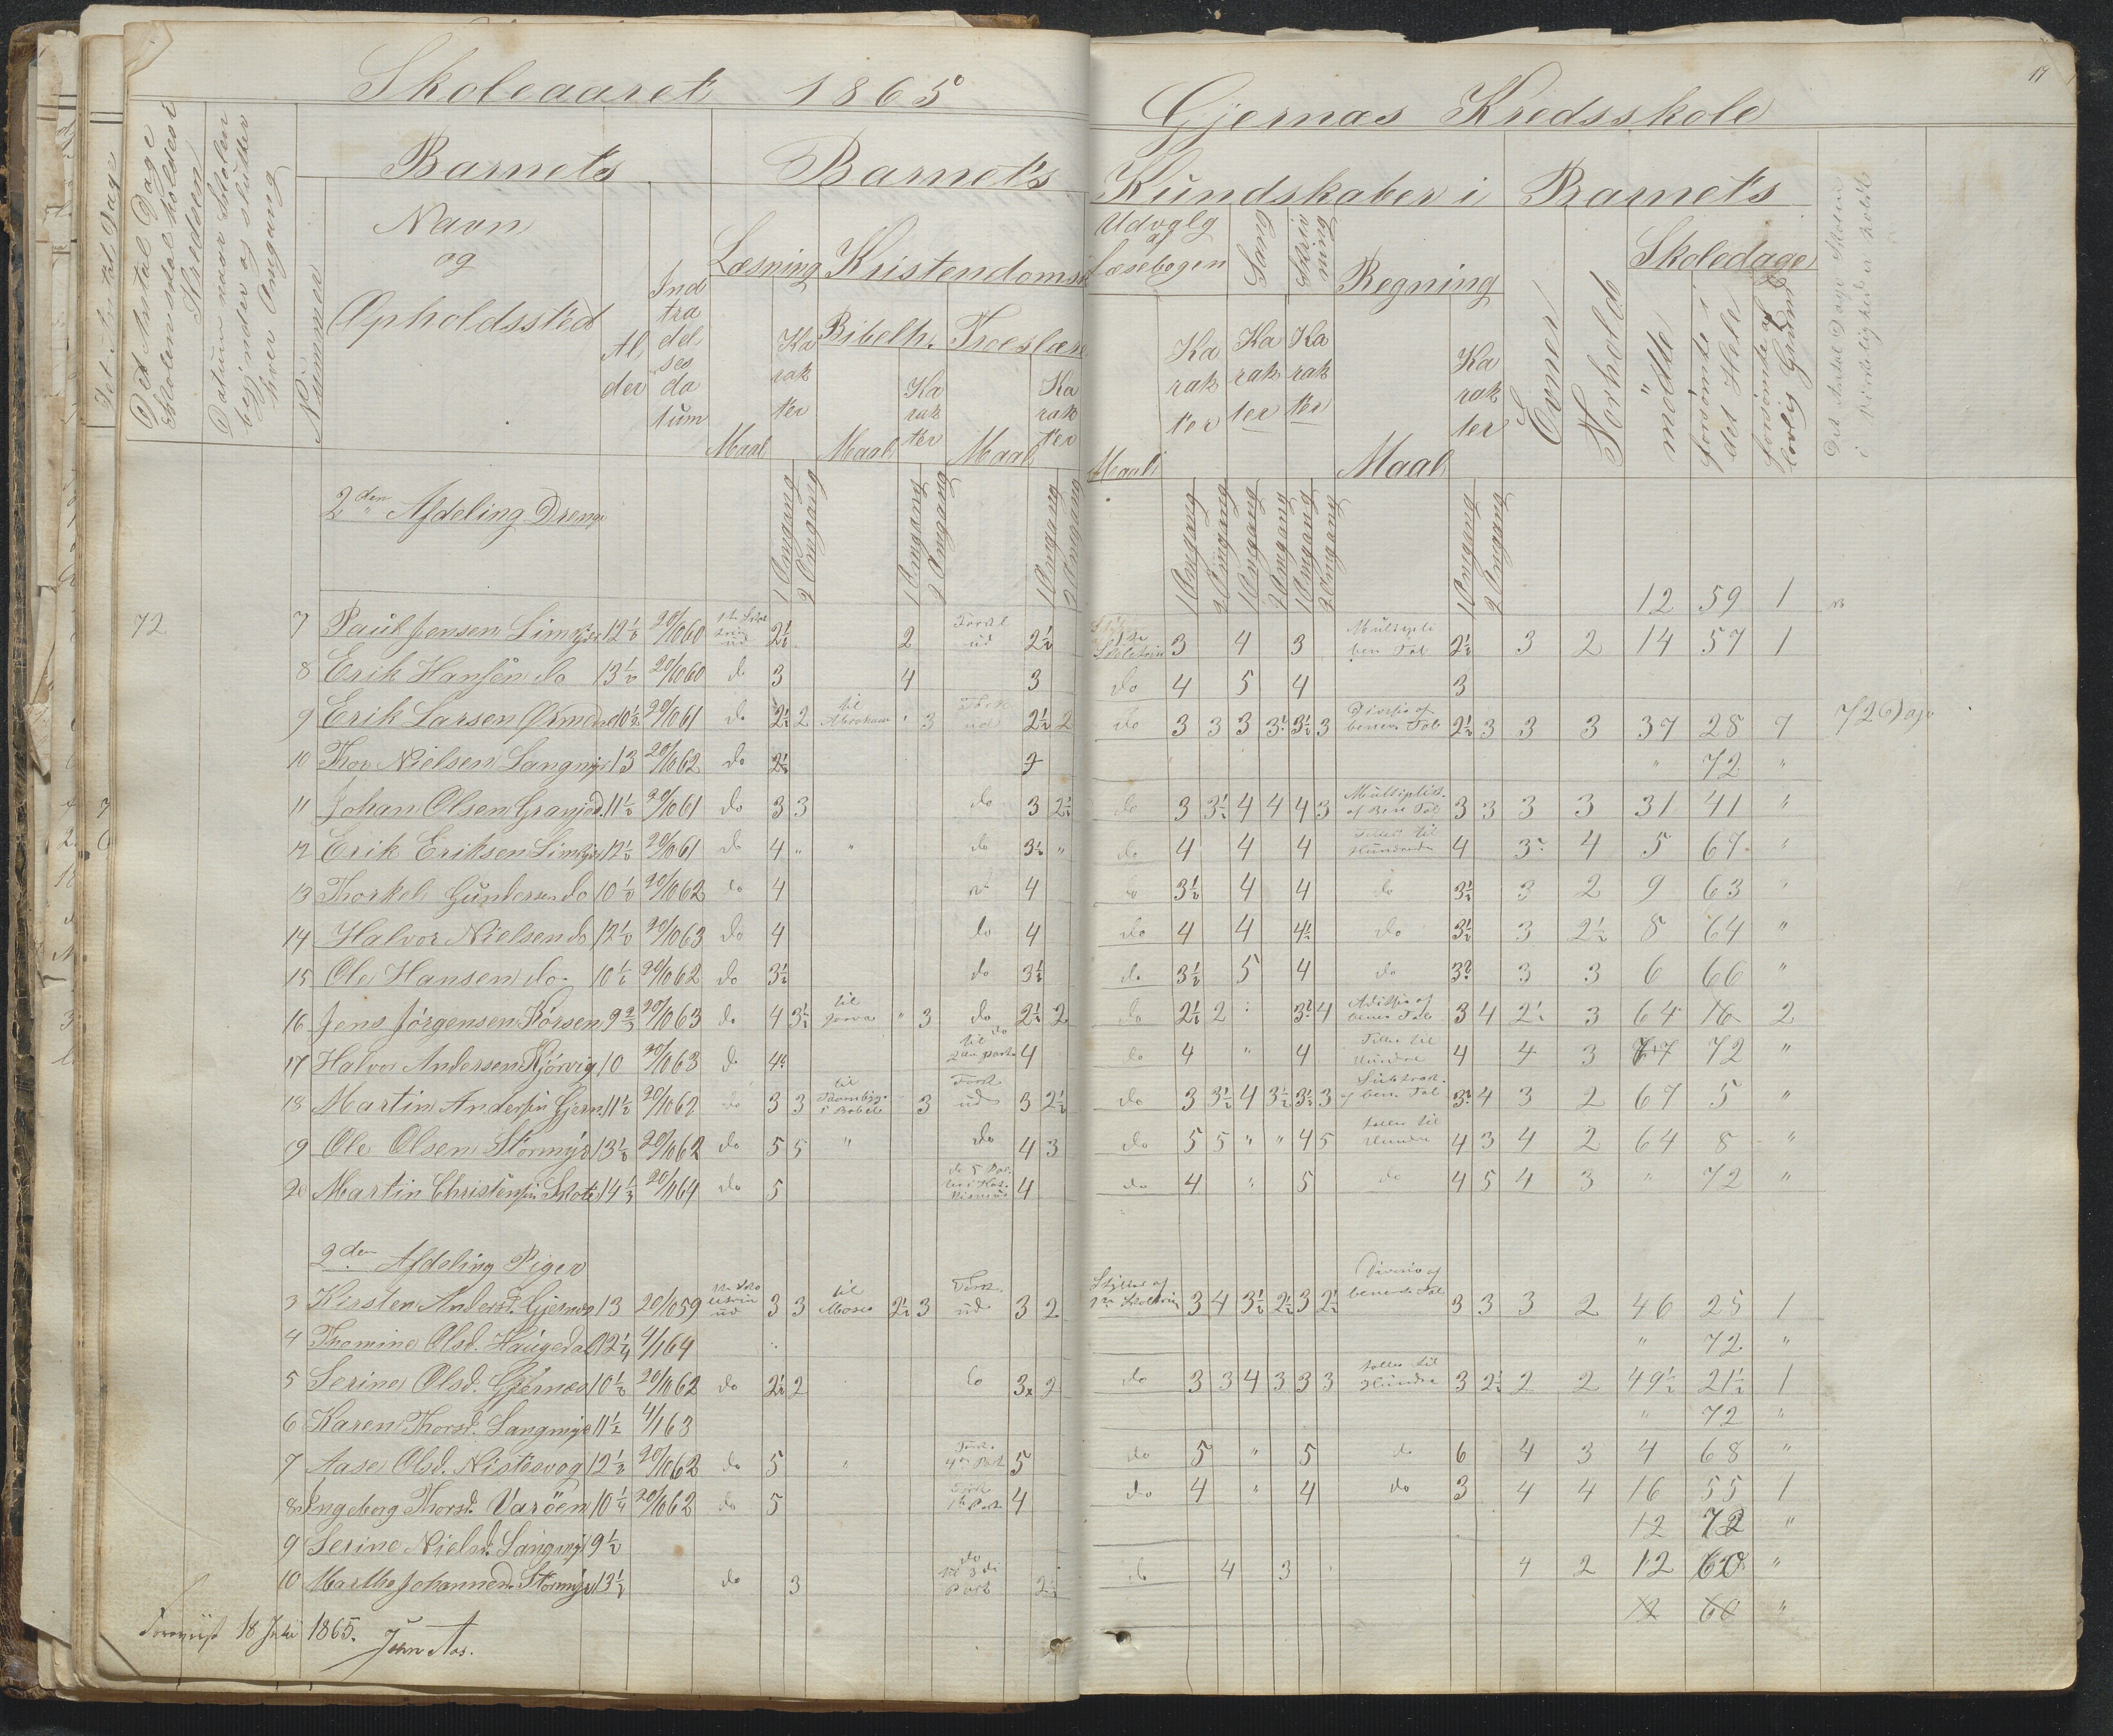 Skoleaaret 1865
Gjernæs Kredsskole
17
Det Antal Dage
Skolen skal holdes i
Kredsen
Datum naar Skolen
begynder og slutter
hver Omgang
Nummer
Barnets
Navn
og
Opholdssted
Al
der
Ind
træ
del
ses
da
tum
Barnets
Læsning
Maal
Ka
rak
ter
Kristendomsk
Bibelh.
Maal
Ka
rak
ter
Troeslære
Maal
Ka
rak
ter
Kundskaber i
Udvalg
af
Læsebogen
Maal
Ka
rak
ter
Sang
Ka
rak
ter
Skriv
ning
Ka
rak
ter
Regning
Maal
Ka
rak
ter
Barnets
Evner
Forhold
Skoledage
mödte
forsömte i
det Hele
forsömte af
lovlig Grund
Det Antal Dage Skolen
i Virkelighed er holdt
1 Omgang 2 Omgang 1 Omgang 2 Omgang 1 Omgang 2 Omgang
1 Omgang 2 Omgang 1 Omgang 2 Omgang 1 Omgang 2 Omgang 1 Omgang 2 Omgang
2den Afdeling Drenge
12 59 1
72 7 Paul Jensen 12½ 20/10 60 ud 2½ 2 ud 2½ 3 4 3 Multipli ben Tal 2½ 3 2 14 57 1
8 Erik Hansen do 13½ 20/10 60 do 3 4 3 do 4 5 4 3
9 Erik Larsen 10½ 20/10 61 do 2½ 2 til Abraham " 3 ud 2½ 2 do 3 3 3 3½ 3½ 3 Divisio af benev. Tal 2½ 3 3 3 37 28 7 72 Dage
10 Thor Nielsen Langmyr 13 20/10 62 do 2½ " 72 "
11 Johan Olsen 11½ 20/10 61 do 3 3 do 3 2½ do 3 3½ 4 4 4 3 Multiplik. af Ben Tal 3 3 3 3 31 41 "
12 Erik Eriksen 12½ 20/10 61 do 4 " " do 3½ " do 4 4 4 til Hundrede 4 3 4 5 67 "
13 Thorkel Gundersen do 10½ 20/10 62 do 4 4 do 3½ 4 4 do 3½ 3 2 9 63 "
14 Halvor Nielsen do 12½ 20/10 63 do 4 do 4 do 4 4 4½ do 3½ 3 2½ 8 64 "
15 Ole Hansen do 10½ 20/10 62 do 3½ do 3½ do 3½ 5 4 do 3½ 3 3 6 66 "
16 Jens Jörgensen 9 20/10 63 do 4 3½ til " 3 do 2½ 2 do 2½ 2 3½ 4 Adition af benev Tal 3 4 2½ 3 64 16 2
17 Halvor Andersen Kjörvig 10 20/10 63 do 4 til Part 4 do 4 " 4 Teller til Hundre 4 4 3 72 "
18 Martin Andersen Gjern 11½ 20/10 62 do 3 3 til Babel 3 Fork ud 3 2½ do 3 3½ 4 3½ 3½ 3 Subtrak. af ben. Tal 3½ 4 3 2 67 5 "
19 Ole Olsen Stormyr 13½ 20/10 62 do 5 5 " do 4 3 do 5 5 " " 4 5 teller til Hundre 4 3 4 2 64 8 "
20 Martin Christensen 14 20/1 64 do 5 4 do 4 " 5 do 4 5 4 3 " 72 "
2den Afdeling Piger
3 Kirsten Andersd. Gjernæs 13 20/10 59 ud 3 3 til Moses 2½ 3 Fork. ud 3 2 Stykker af 3 4 3½ 2½ 3 2½ Divisio af benev. Tal 3 3 3 2 46 25 1
4 Thomine Olsd. Haugedal 12¼ 4/1 64 " 72 "
5 Serine Olsd. Gjernæs 10½ 20/10 62 do 2½ 2 do 3 2 do 3 3 4 3 3 3 teller til Hundre 3 2½ 2 2 49½ 21½ 1
6 Karen Thorsd. Langmyr 11½ 4/1 63 " 72 "
7 Aase Olsd. 12½ 20/10 62 do 5 " Part 5 do 5 " 5 do 6 4 3 4 68 "
8 Ingeborg Thorsd. Varöen 10¼ 20/10 62 do 5 Fork Part 4 do 4 " 4 do 3 4 4 16 55 1
12 72 "
9 Serine Nielsd. Langmyr 9½
10 Marthe Johannesd. Stormyr 13½ do 3 do Part 2½ do 4 3 4 2 12 60 "
12 60 "
18 Juli 1865.
John Aas.